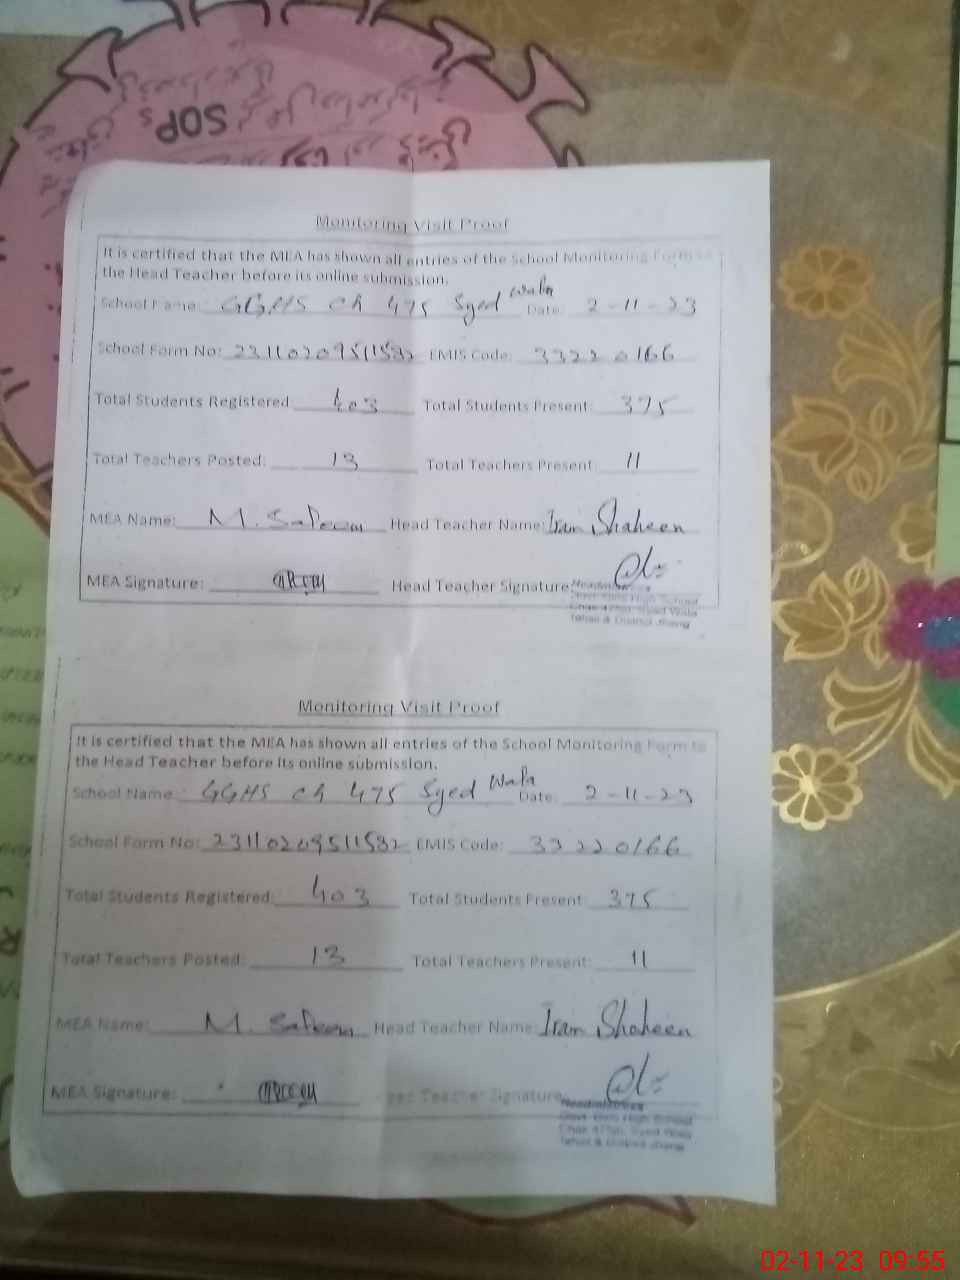 SOPs
Monitoring Visit Proof
It is certified that the MEA has shown all entries of the School Monitoring Form to
the Head Teacher before its online submission.
School Name: GGHS Ch 475 Syed Wala Date: 2-11-23
School Form No: 23110209511532 EMIS Code: 33220166
Total Students Registered: 403 Total Students Present: 375
Total Teachers Posted: 13 Total Teachers Present: 11
MEA Name: M. Saleem Head Teacher Name: Iram Shaheen
MEA Signature: Head Teacher Signature:
Headmistress
Govt. Girls High School
Chak 475/ Syed Wala
Tehsil & District Jhang
Monitoring Visit Proof
It is certified that the MEA has shown all entries of the School Monitoring Form to
the Head Teacher before its online submission.
School Name: GGHS Ch 475 Syed Wala Date: 2-11-23
School Form No: 23110209511532 EMIS Code: 33220166
Total Students Registered: 403 Total Students Present: 375
Total Teachers Posted: 13 Total Teachers Present: 11
MEA Name: M. Saleem Head Teacher Name: Iram Shaheen
MEA Signature: Head Teacher Signature:
Headmistress
Govt. Girls High School
Chak 475/ Syed Wala
Tehsil & District Jhang
02-11-23 09:55